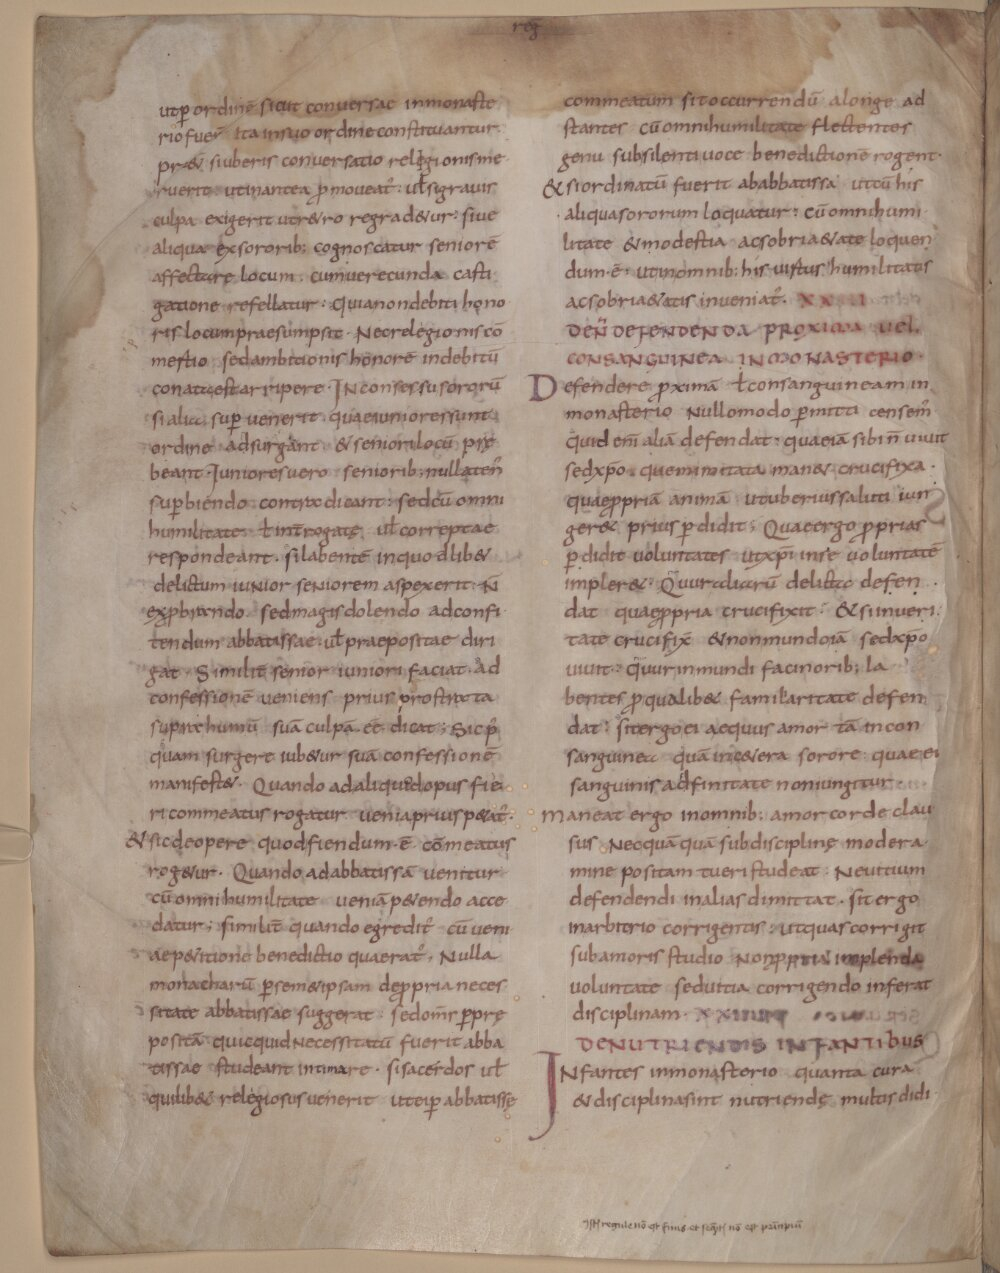 reg
utp̄ ordinē sicut conversae inmonaste
rio fuer̄ ita insuo ordine constituantur.
pr&̄ siuberis conversatio religionis me
ruerit utinantea p̄moueat᷒: ul̄ sigravis
culpa exigerit utr&ro regrad&ur: sive
aliqua exsororib; cognoscatur seniorē
affectare locum. cumverecunda casti
gatione refellatur. Quia non debiti hono
ris locum praesumpsit. Nec relegionis cō
mestio sed ambitionis honorē indebitū
conata est arripere. IN consessu sororū
si aliqua sup̄venerit. quae iuniores sunt
ordine adsurgant. & seniori locū prę
beant. Iuniores vero seniorib; nullaten᷒
sup̄biendo contradicant: sed cū omni
humilitate. ł int̄rogate ul̄ correptae
respondeant. si labentē in quodlib&
delictum iunior seniorem aspexerit. N̄
exp̄brando sed magis dolendo ad confi
tendum abbatissae. ul̄ praepositae diri
gat. Similit̄ senior iuniori faciat. Ad
confessionē veniens prius prostrata
supra humū suā culpā eē dicat; Sic p̄
quam surgere iub&ur suā confessionē
manifest&. Quando ad aliquid opus fie
ri commeatus rogatur venia prius p&at᷒.
& sic de opere quod fiendum ē. cōmeatus
rog&ur. Quando ad abbatissā venitur
cū omni humilitate veniā p&endo acce
datur; similit̄ quando egredit᷒ cū veni
ae p&itione benedictio quaerat᷒; Nulla
monacharū p̄ sem&ipsam de p̄pria neces
sitate abbatissae suggerat. sed om̄s p̄ prę
positā quicquid necessitatū fuerit abba
tissae studeant intimare. si sacerdos ul̄
quilib& relegiosus venerit ut eip̄ abbatissę
commeatum sit occurrendū a longe ad
stantes cū omni humilitate flectentes
genu sub silenti voce benedictionē rogent.
& si ordinatū fuerit ab abbatissa ut cū his
aliqua sororum loquatur: cū omni humi
litate & modestia ac sobria&ate loquen
dum ē. ut in omnib; his virtus humilitatis
ac sobria&atis inveniat᷒. XXIII
DE N̄ DEFENDENDA PROXIMA VEL
CONSANGUINEA IN MONASTERIO.
Defendere proximā ł consanguineam in
monasterio nullo modo p̄mitti censem᷒
quid enī aliā defendat. quae iā sibi n̄ vivit
sed xp̄o. quem imitata man& crucifixa.
quae p̄priā animā ut uberius saluti iun
ger& prius p̄didit; Quae ergo p̄prias
p̄didit voluntates ut xp̄i in se voluntatē
impler&. Q̄ur aliarū delicta defen
dat quae p̄pria crucifixit. & si in veri
tate crucifix̄ & non mundo iā sed xp̄o
vivit. q̄ur in mundi facinorib; la
bentes p̄ qualib& familiaritate defen
dat: sit ergo ei aequus amor tā in con
sanguinea quā in c&era sorore. quae ei
sanguinis adfinitate non iungitur.
Maneat ergo in omnib; amor corde clau
sus Nec quāquā sub disciplinę modera
mine positam tueri studeat. Ne vitium
defendendi in alias dimittat. sit ergo
in arbitrio corrigentis: ut quas corrigit
sub amoris studio non p̄pria implenda
voluntate sed vitia corrigendo inferat
disciplinam. XXIIII
DE NUTRIENDIS INFANTIBUS
INfantes in monasterio quanta cura
& disciplina sint nutriendę multis didi
Isti regule nō est finis et sequēti nō est principiū